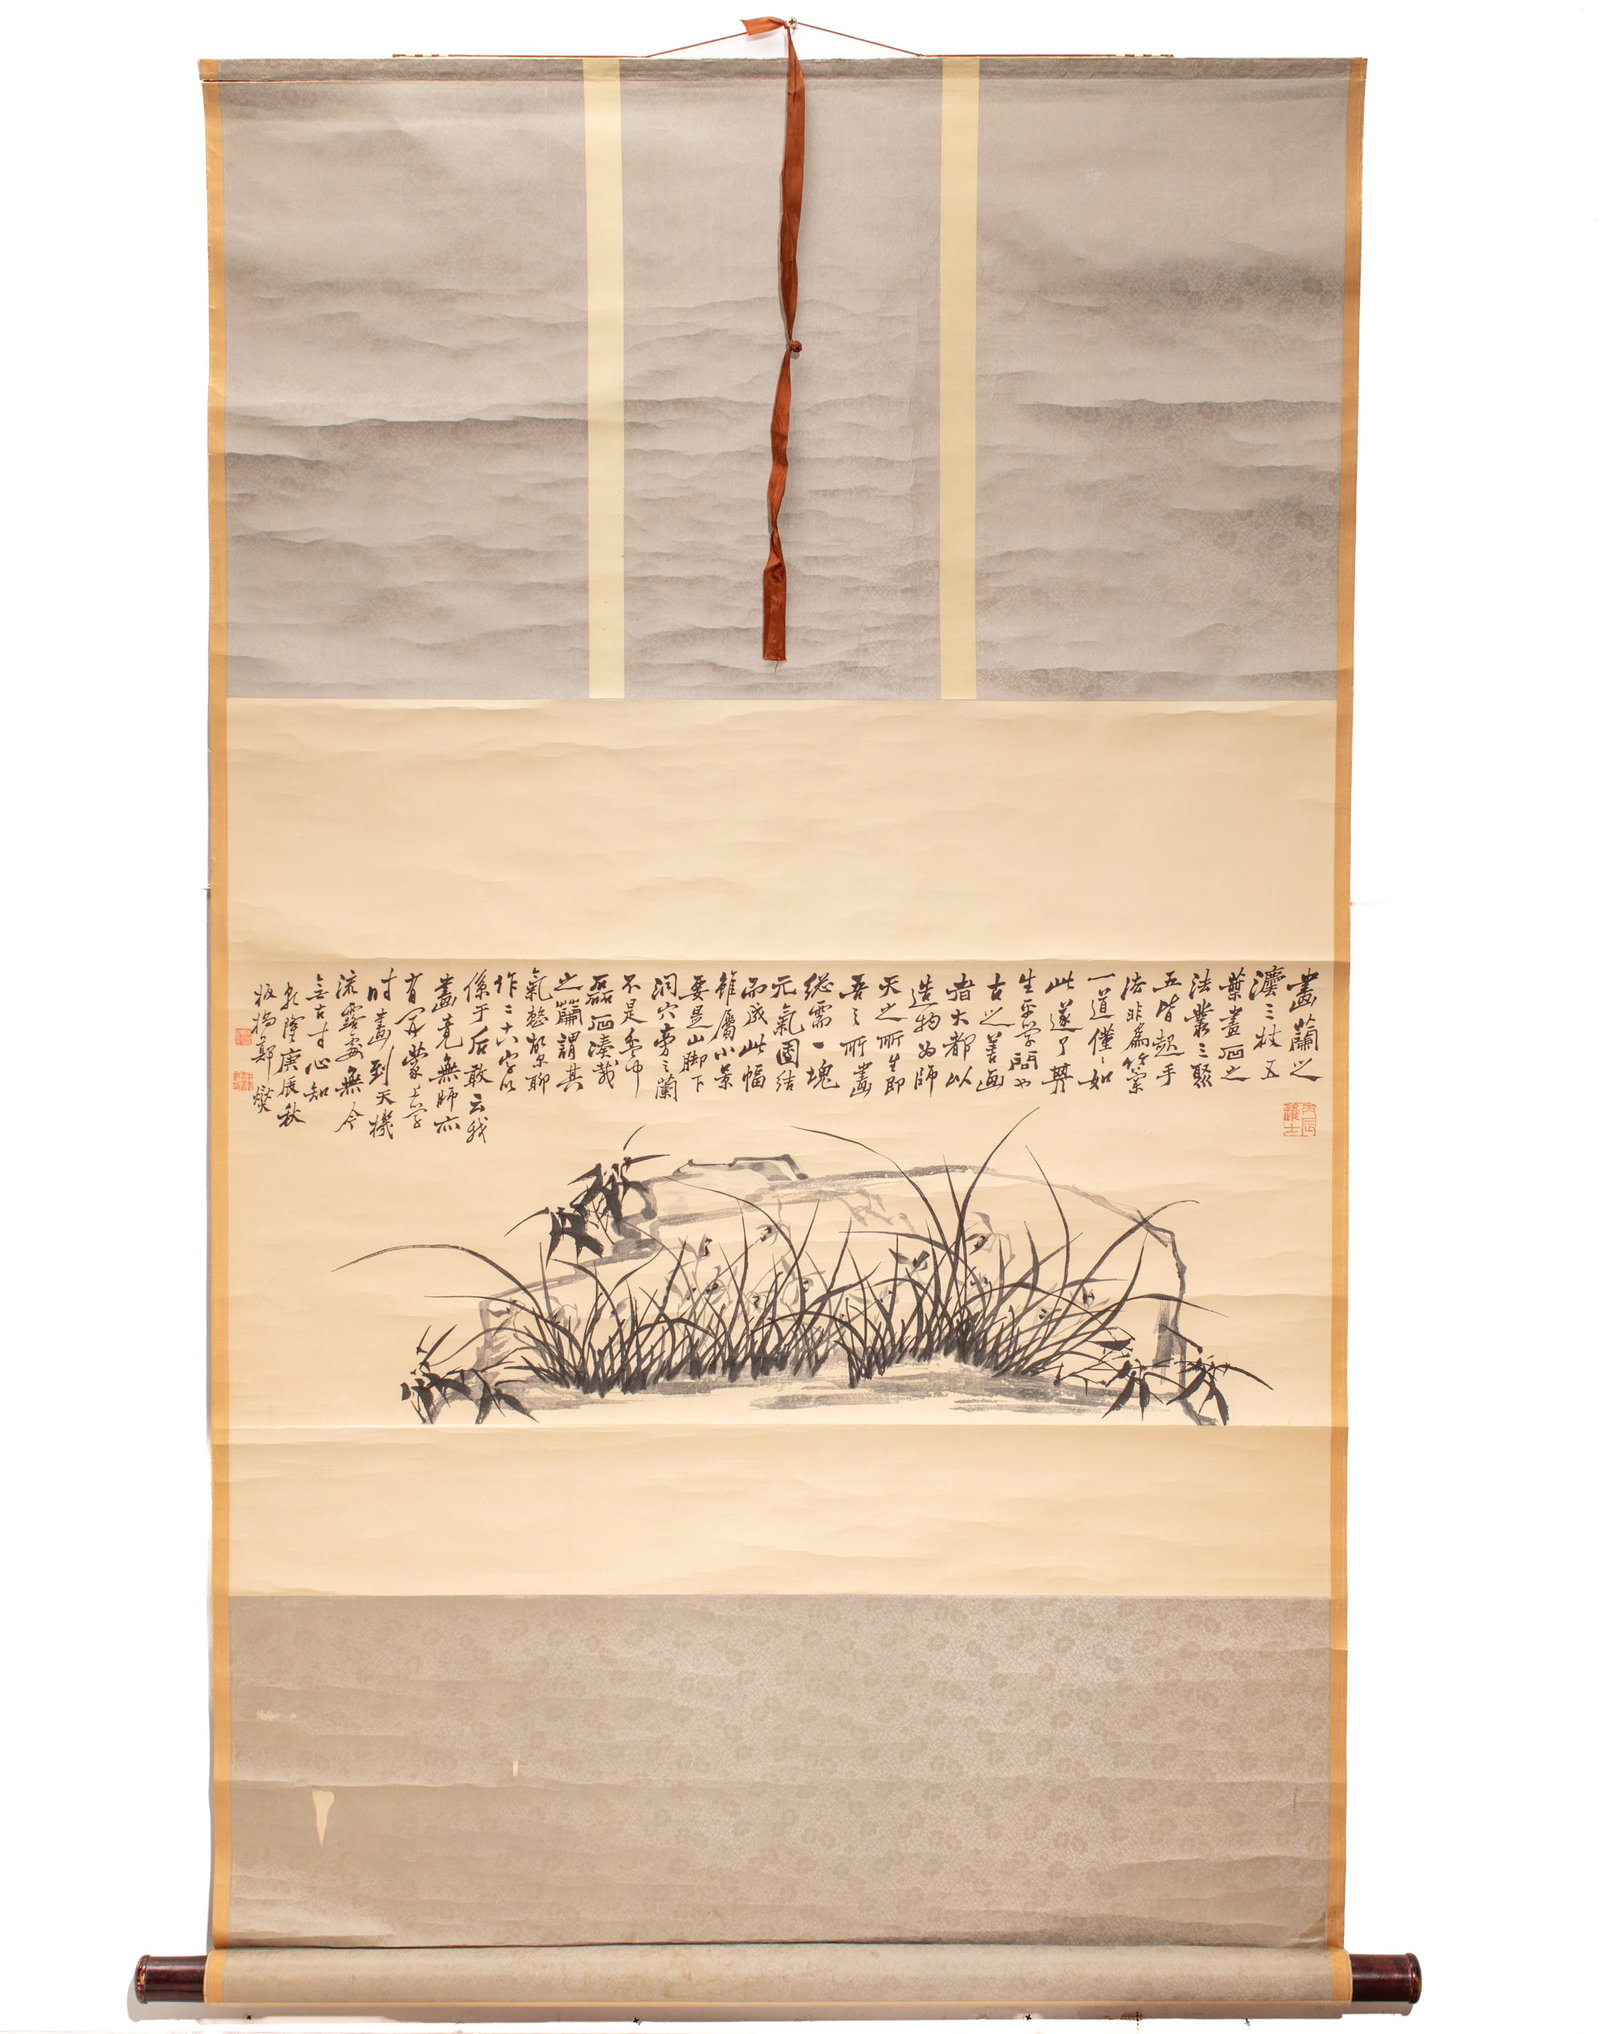 畫蘭之
灋三枝五
葉畫石之
法叢三聚
五皆起手
法非為竹蘭
一道僅〻如
此遂了其
生平學問也
古之善画
者大都以
造物為師
天之所生即
吾之所畫
總需一塊
元氣團結
而成此幅
雖屬小景
要是山脚下
洞穴旁之蘭
不是盆中
磊石湊栽
之蘭謂其
氣整故聊
作二十八字以
係于后敢云我
畫竟無師亦
有開蒙上學
時畫到天機
流露處無今
無古寸心知
乾隆庚辰秋
板橋鄭燮
丙辰
進士